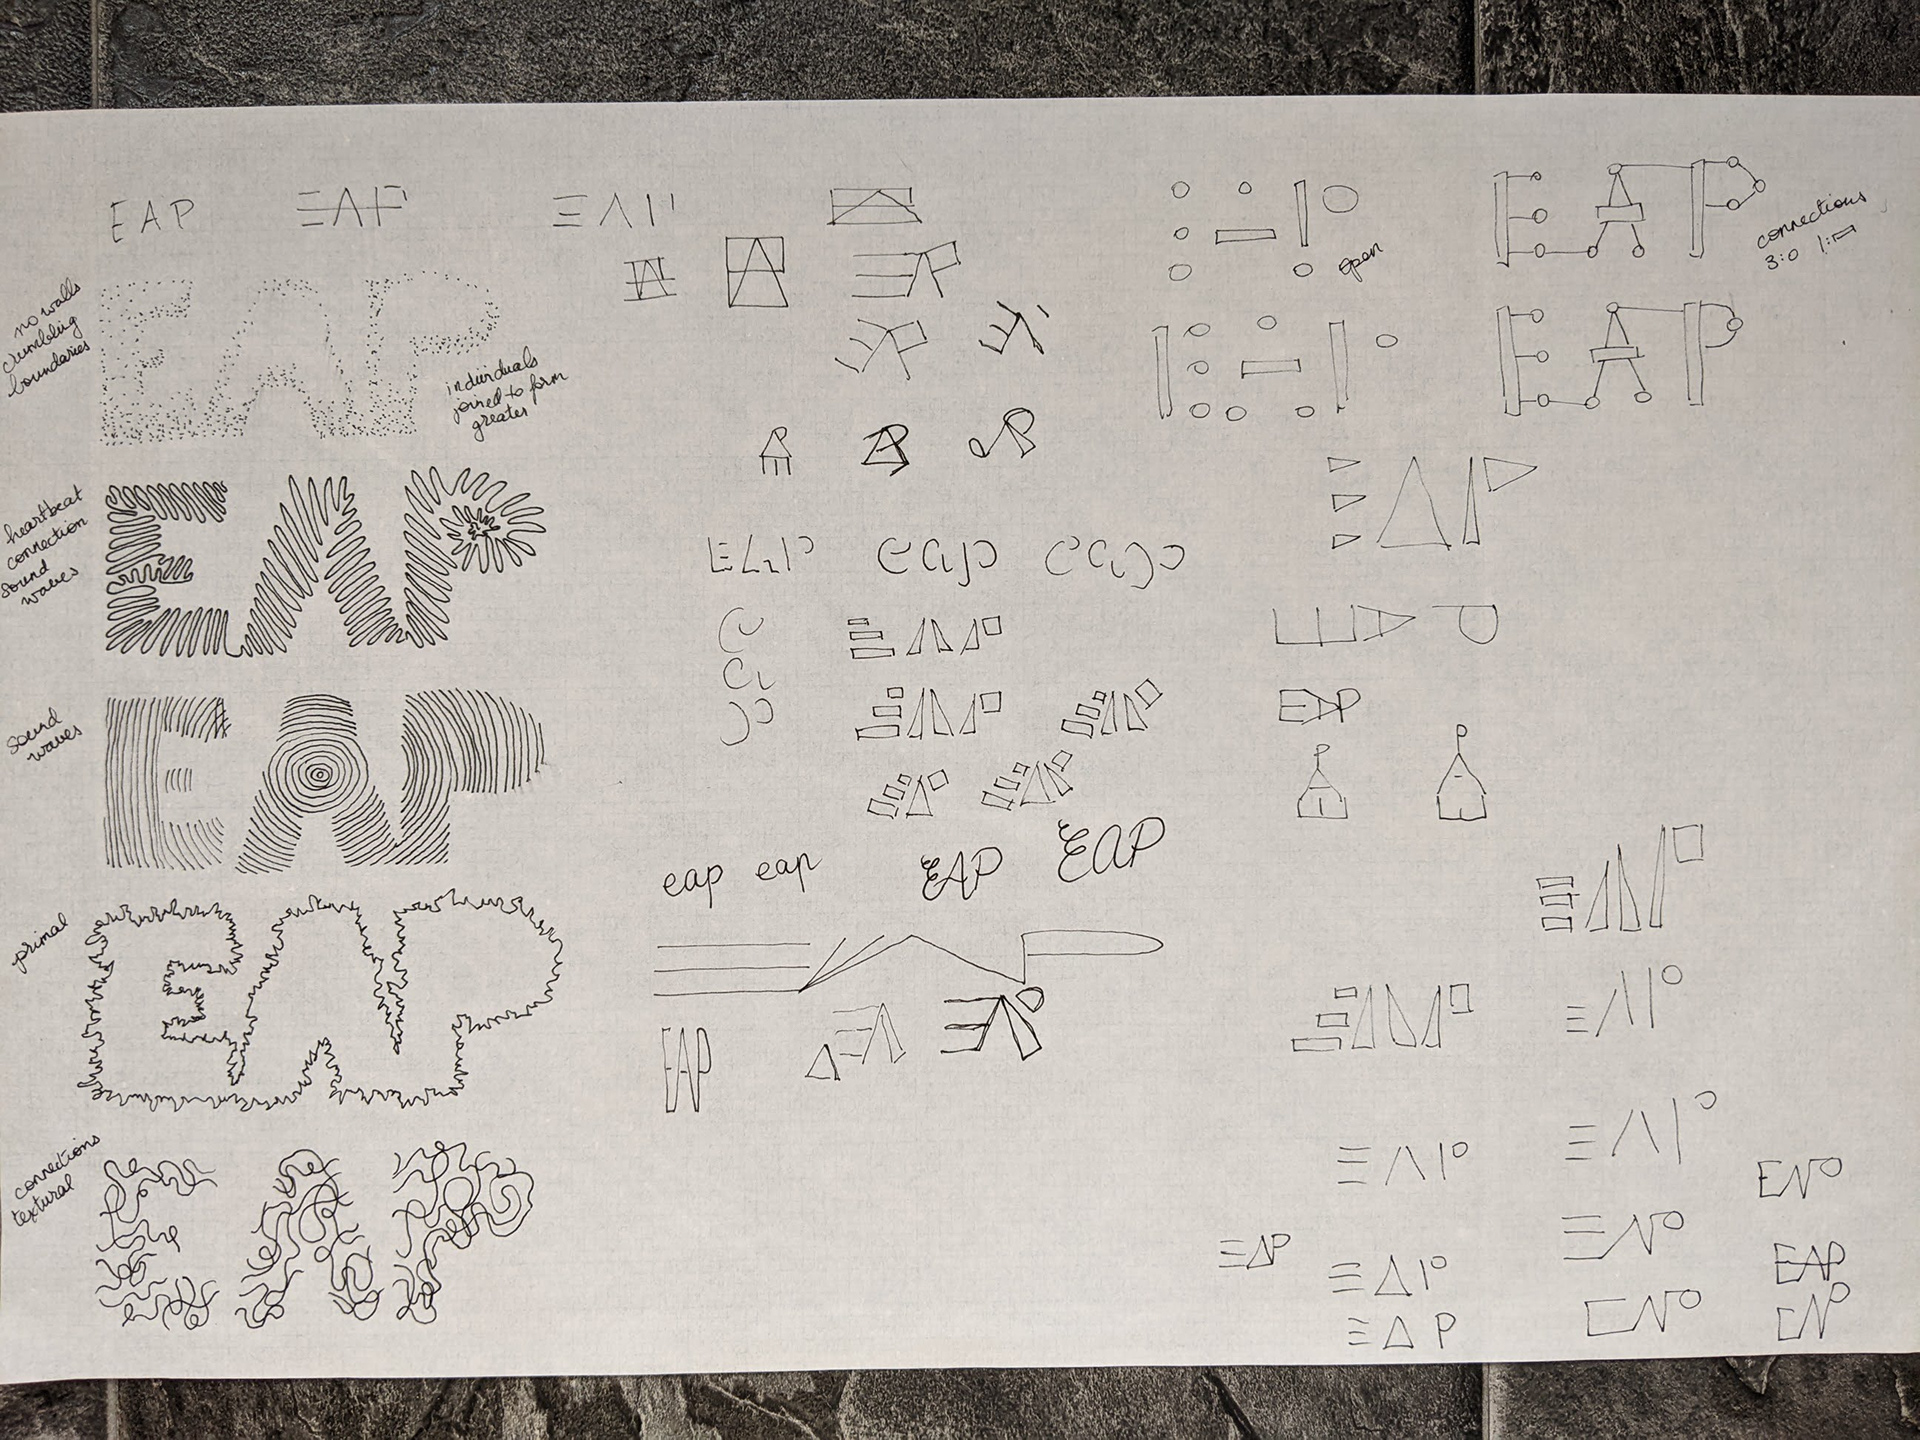 EAP
EAP
EAP
no walls
crumbling
boundaries
EAP
individuals
joined to form
greater
open
EAP
connections
3:0 1:▭
EAP
heartbeat
connection
sound
waves
EAP
EAP
eap
eap
EAP
EAP
sound
waves
EAP
EAP
eap
eap
EAP
EAP
primal
EAP
EAP
connections
textural
EAP
EAP
EAP
EAP
EAP
EAP